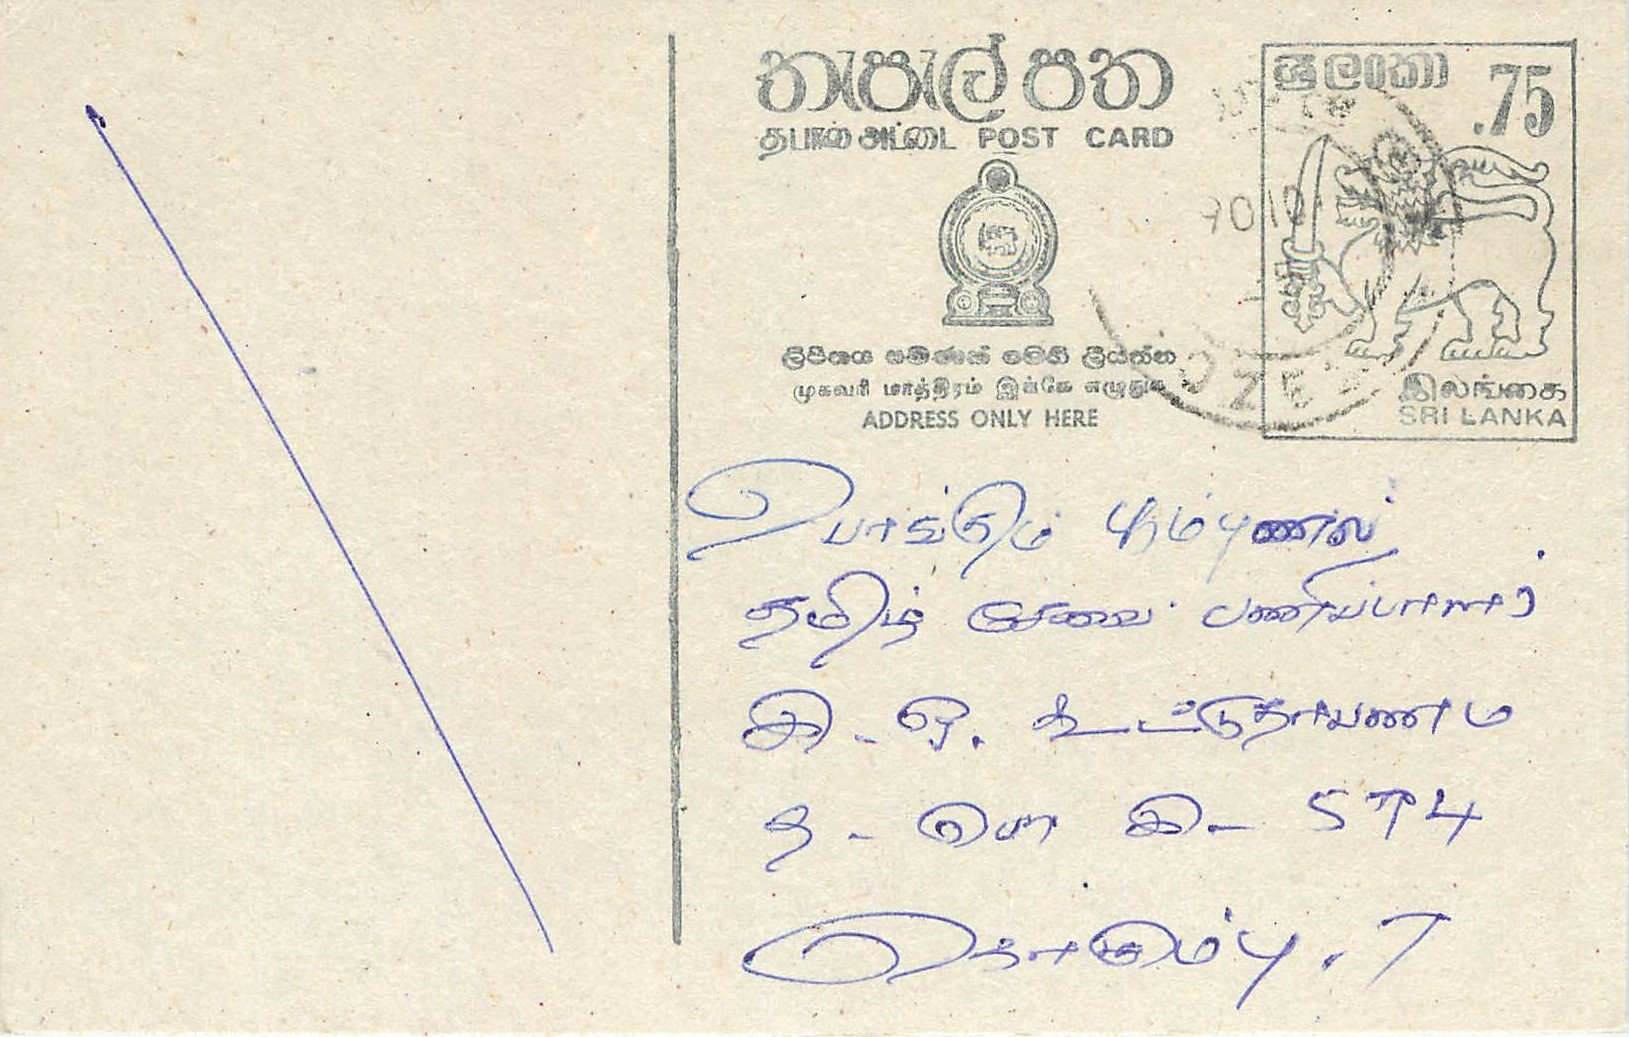 තැපැල් පත
தபால் அட்டை POST CARD
ලිපිනය පමණක් මෙහි ලියන්න
முகவரி மாத்திரம் இங்கே எழுதுக
ADDRESS ONLY HERE
ශ්‍රී ලංකා
.75
90 10
இலங்கை
SRI LANKA
பொங்கும் பூம்புனல்
தமிழ் சேவை பணிப்பாளர்
இ. ஒ. கூட்டுதாபணம்
த. பெ இ. 574
கொழும்பு. 7